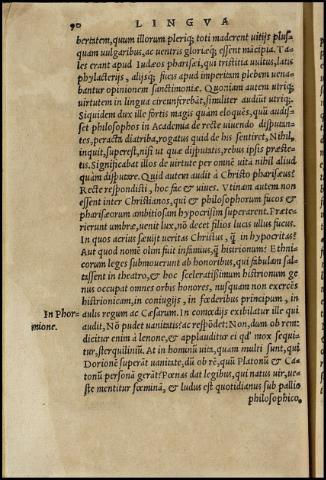 90 LINGVA
bertatem, quum illorum pleriq; toti maderent uitijs plus
quam vulgaribus, ac uentris gloriæq; essent mācipia. Ta-
les erant apud Iudæos pharisæi, qui tristitia uultus, latis
phylacterijs, alijsq; fucis apud imperitam plebem uena-
bantur opinionem sanctimoniæ. Quoniam autem utriq;
uirtutem in lingua circunferebāt, similiter audiūt utriq;.
Siquidem dux ille fortis magis quam eloquēs, quū audis-
set philosophos in Academia de recte uiuendo disputan-
tes, peracta diatriba, rogatus quid de his sentiret, Nihil,
inquit, superest, nisi ut quæ disputatis, rebus ipsis præste-
tis. Significabat illos de uirtute per omnē uita nihil aliud
quàm disputare. Quid autem audit à Christo pharisæus?
Recte respondisti, hoc fac & uiues. Vtinam autem non
essent inter Christianos, qui & philosophorum fucos &
pharisæorum ambitiosam hypocrisim superarent. Præte-
rierunt umbræ, uenit lux, nō decet filios lucis ullus fucus.
In quos acrius sæuijt ueritas Christus, q̄ in hypocritas?
Aut quod nomē olim fuit infamius, q̄ histrionum? Ethni-
corum leges submouerunt ab honoribus, qui fabulam sal-
tassent in theatro, & hoc sceleratissimum histrionum ge
nus occupat omnes orbis honores, nusquam non exercēs
histrionicam, in coniugijs, in fœderibus principum, in
In Phor- aulis regum ac Cæsarum. In comœdijs exibilatur ille qui
mione. audit, Nō pudet uanitatis? ac respōdet: Non, dum ob rem:
dicitur enim à lenone, & applauditur ei qd' mox sequi-
tur, sterquiliniū. At in hominū uita, quam multi sunt, qui
Dorionē superāt uanitate, dū ob rē, quū Platonū & Ca-
tonū personā gerāt? Pœnas dat legibus, qui natus uir, ue-
ste mentitur fœminā, & ludus est quotidianus sub pallio
philosophico,